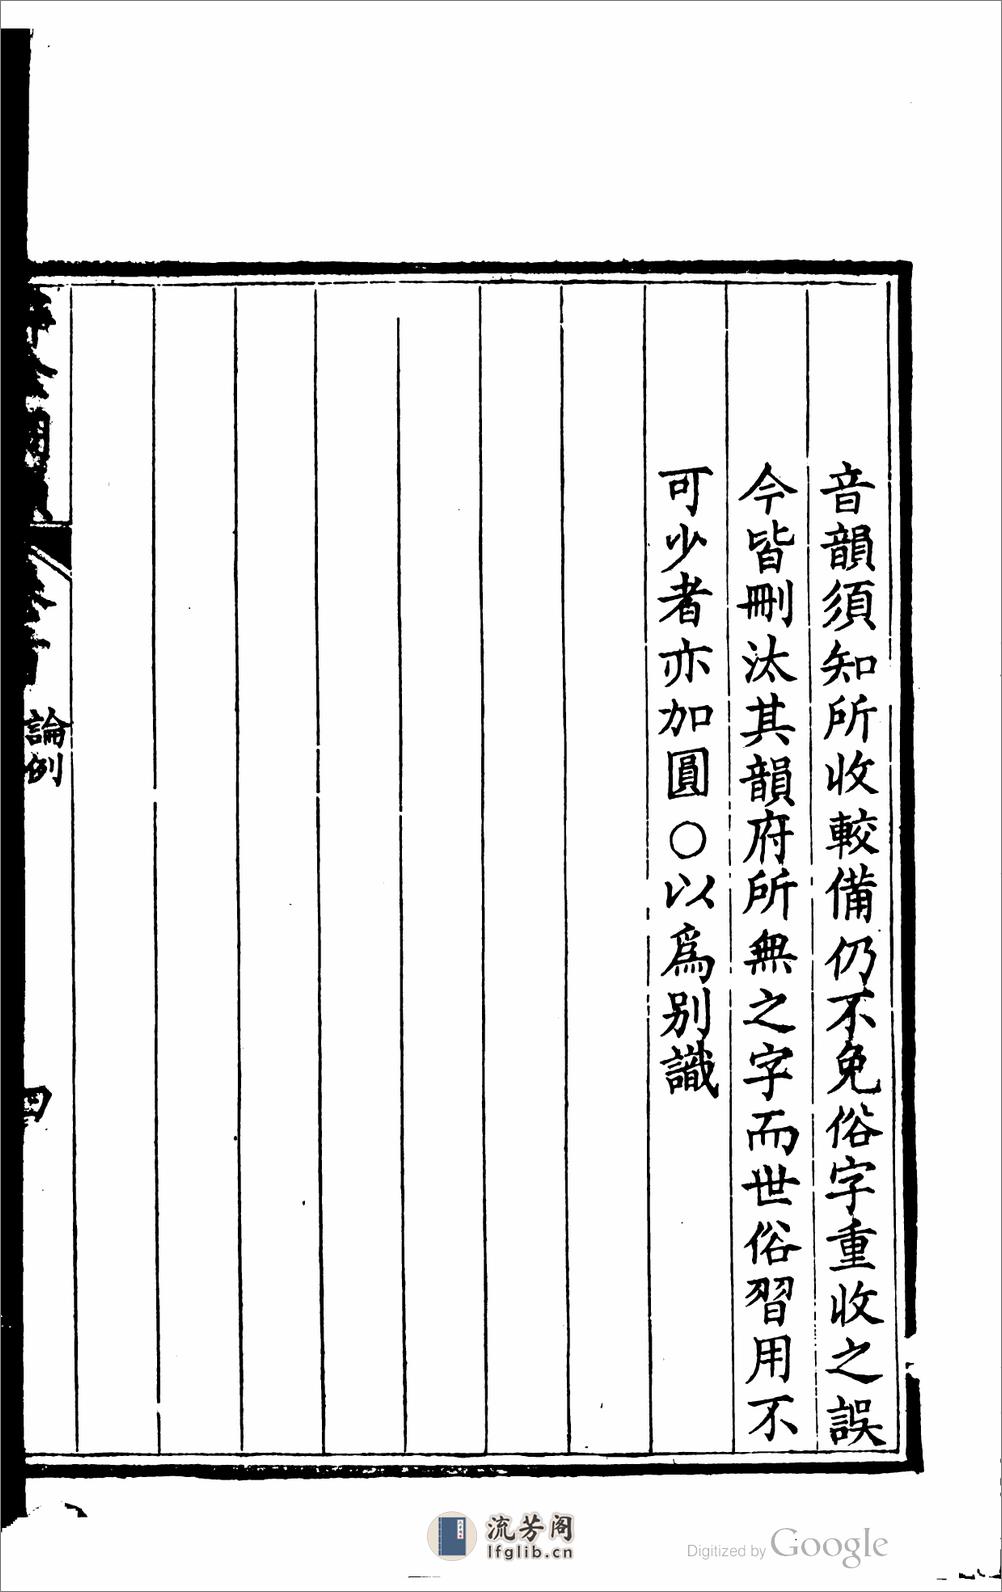 音韻須知所收較備仍不免俗字重收之誤
今皆刪汰其韻府所無之字而世俗習用不
可少者亦加圓○以爲别識
論例
四
流芳阁
lfglib.cn
Digitized by Google